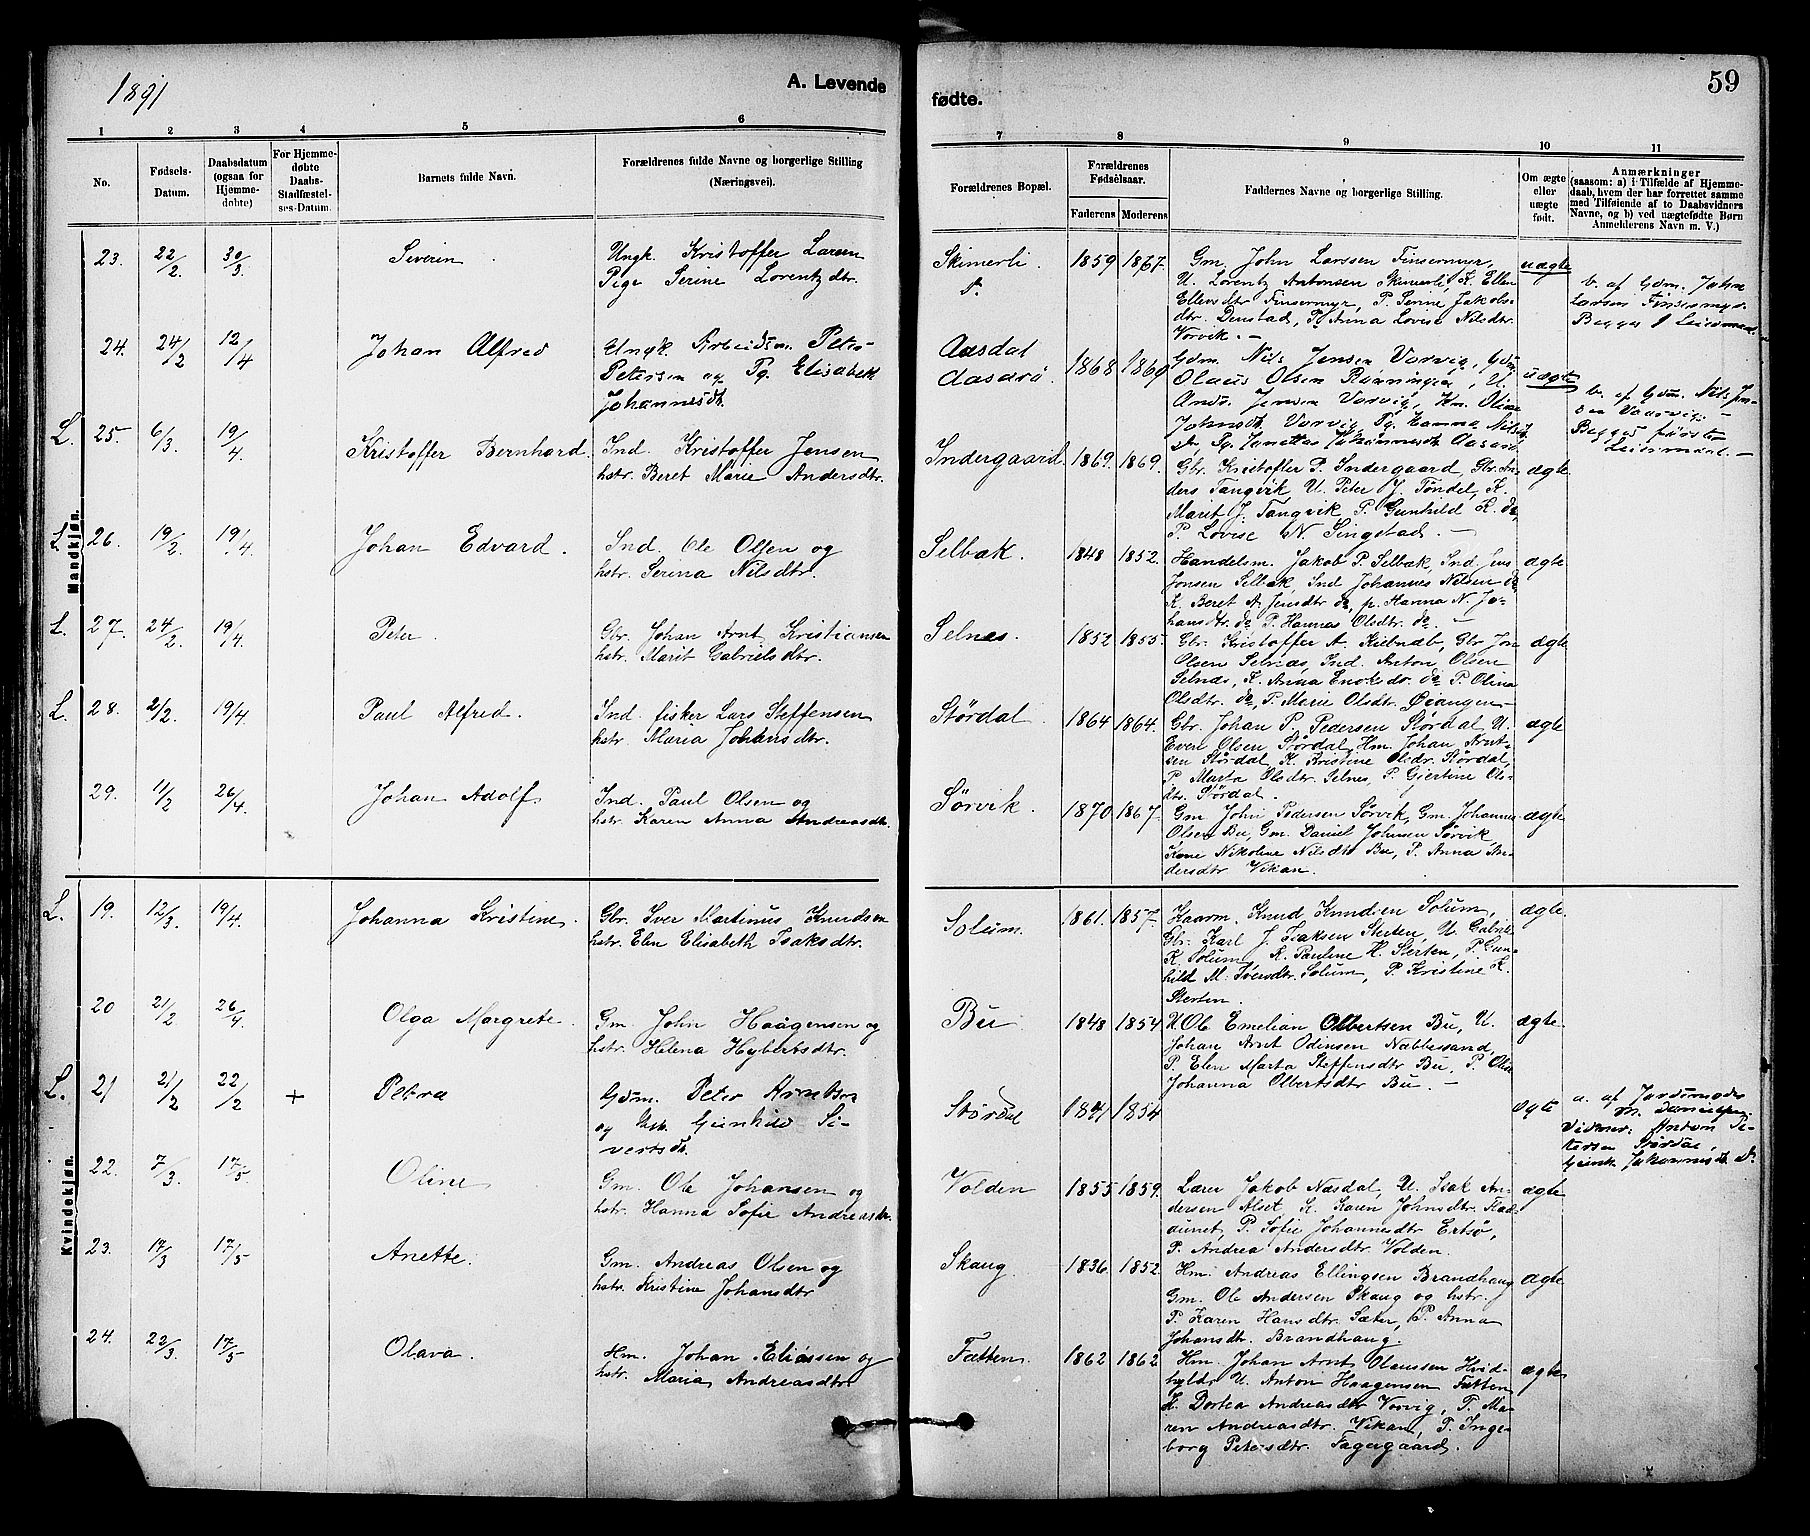 1891
A. Levende
fødte.
59
1 2 3 4 5 6
7 8 9 10 11
No.
Fødsels-
Datum.
Daabsdatum
(ogsaa for
Hjemme-
døbte)
For Hjemme-
døbte
Daabs-
Stadfæstel-
ses-Datum.
Barnets fulde Navn.
Forældrenes fulde Navne og borgerlige Stilling
(Næringsvei).
Forældrenes Bopæl.
Forældrenes
Fødselsaar.
Faderens Moderens
Faddernes Navne og borgerlige Stilling.
Om ægte
eller
uægte
født.
Anmærkninger
(saasom: a) i Tilfælde af Hjemme-
daab, hvem der har forrettet samme
med Tilføiende af to Daabsvidners
Navne, og b) ved uægtefødte Børn
Anmelderens Navn m. V.)
Mandkjøn.
23. 22/2 30/3 Severin Ungk. Kristoffer Larsen
Pige Serine Lorentzdtr.
Skimerli 1859 1867.
Gm. John Larssen Finsermyr,
U. Lorentz Antonsen Skimerli, K. Ellen
Ellevsdtr Finsermyr, P. Serine Jakobs-
dtr. Denstad, P. Anna Lovise Nilsdtr.
Vorvik. —
uægte
b. af Gdm. John
Larsen Finsermyr.
Begges 1 Leiermaal.
24. 24/2 12/4 Johan Alfred Ungk. Arbeidsm. Peter
Petersen og Pg. Elisabek
Johannesdt.
Aasdal
Aasarø 1868 1869
Gdm. Nils Jensen Vorvig, Gdm
Olaus Olsen Rønningen, U.
Ands. Jensen Vorvig, Kn. Oline
Johnsdt. Vorvig Pg. Hanna Nilsdt
Pg. Janetta Johannesdt Aasarø
uægte
b. af Gdm. Nils Jen-
sen Vorvig. —
Begges første
Leiermaal. —
L. 25. 6/3 19/4 Kristoffer Bernhard. Ind. Kristoffer Jensen
hstr. Beret Marie Andersdtr.
Indergaard. 1869. 1869.
Gbr. Kristoffer P. Indergaard, Gbr. An-
ders Tangvik, U. Peter J. Tøndel, K.
Marit J. Tangvik P. Gunhild R. do,
P. Lovise N. Singstad. —
ægte
L. 26. 19/2 19/4. Johan Edvard. Ind. Ole Olsen og
hstr. Serina Nilsdtr.
Selbæk. 1848 1852.
Handelsm. Jakob P. Selbæk, Ind. Jens
Jonsen Selbæk, Ind Johannes Nilsen do
K. Beret A. Jensdtr do, p. Hanna N. Jo-
hansdtr. do P. Hannas Olsdtr. do. —
ægte
L. 27. 24/2 19/4. Peter. Gbr. Johan Arnt Kristiansen
hstr. Marit Gabrielsdtr.
Selnes. 1852 1855.
Gbr. Kristoffer A. Kiebnæb, Gbr. Jon
Olsen Selnes, Ind. Anton Olsen
Selnes, K. Anna Enoksdr. do P. Olina
Olsdtr. do, P. Marie Olsdtr. Øiangen —
ægte
L. 28. 2/2. 19/4. Paul Alfred. Ind. fisker Lars Steffensen
hstr. Maria Johansdtr.
Størdal. 1864 1864.
Gbr. Johan P. Pedersen Størdal, U.
Even Olsen Størdal, Hm. Johan Arnt-
sen Størdal, K. Kristine Olsdr. Størdal,
P. Marta Olsdtr. Selnes, P. Gjertine Ols-
dtr. Størdal.
ægte
29. 11/2 26/4. Johan Adolf Ind. Paul Olsen og
hstr. Karen Anna Andreasdtr.
Sørvik. 1870 1867.
Gm. John Pedersen Sørvik, Gm. Johannes
Olsen Bu, Gm. Daniel Johnsen Sørvik
Kone Nikoline Nilsdtr Bu, P. Anna An-
dersdtr. Vikan.
ægte
Kvindekjøn.
L. 19. 12/3. 19/4. Johanna Kristine. Gbr. Iver Martinus Knudsen
hstr. Elen Elisabeth Isaksdtr.
Solum. 1861. 1857.
Kaarm. Knud Knudsen Solum,
Gbr. Karl J. Isaksen Sterten, U. Gabriel
K. Solum, K. Pauline H. Sterten, P. Gun-
hild M. Iversdtr. Solum, P. Kristine K.
Sterten.
ægte.
20 21/2 26/4. Olga Margrete. Gm. John Haagensen og
hstr. Helena Hybertsdtr.
Bu 1848 1854
U Ole Emelian Olbertsen Bu, U.
Johan Arnt Odinsen Nabbessand,
P. Elen Marta Steffensdtr Bu, P. Oline
Johanna Olbertsdtr Bu. —
ægte.
L. 21 21/2 22/2 + Petra Gdm. Peter Arntsen
og Hst. Gunhild Si-
vertsdt.
Størdal 1841 1854
ægte
a. af Jordmoder
M. Danielsen.
Vidner: Anton Pe-
tersen Størdal,
Gunh. Johannesdt. do
22. 7/3. 17/5. Oline Gm. Ole Johansen og
hstr. Hanna Sofie Andreasdtr.
Volden 1855 1859.
Lærer Jakob Næsdal, U. Isak An-
dersen Alset K. Karen Johnsdtr. Kad-
aunet, P. Sofie Johannesdtr Ertsø,
P. Andrea Andersdtr. Volden.
ægte
23. 17/3 17/5 Anette. Gm. Andreas Olsen og
hstr. Kristine Johansdtr
Skaug 1836 1852
Hm. Andreas Ellingsen Brandhaug
Gm. Ole Andersen Skaug og hstr.
P. Karen Hansdtr. Sæter, P. Anna
Johansdtr. Brandhaug.
ægte
24. 22/3. 17/5 Olava. Hm. Johan Eliassen og
hstr. Maria Andreasdtr.
Fætten 1862 1862
Hm. Johan Arnt Olaussen Hvid-
hyldr U. Anton Haagensen Fætten
K. Dortea Andreasdtr Vorvig, P. Ma-
ren Andreasdtr. Vikan, P. Inge-
borg Petersdtr. Fagergaard.
ægte